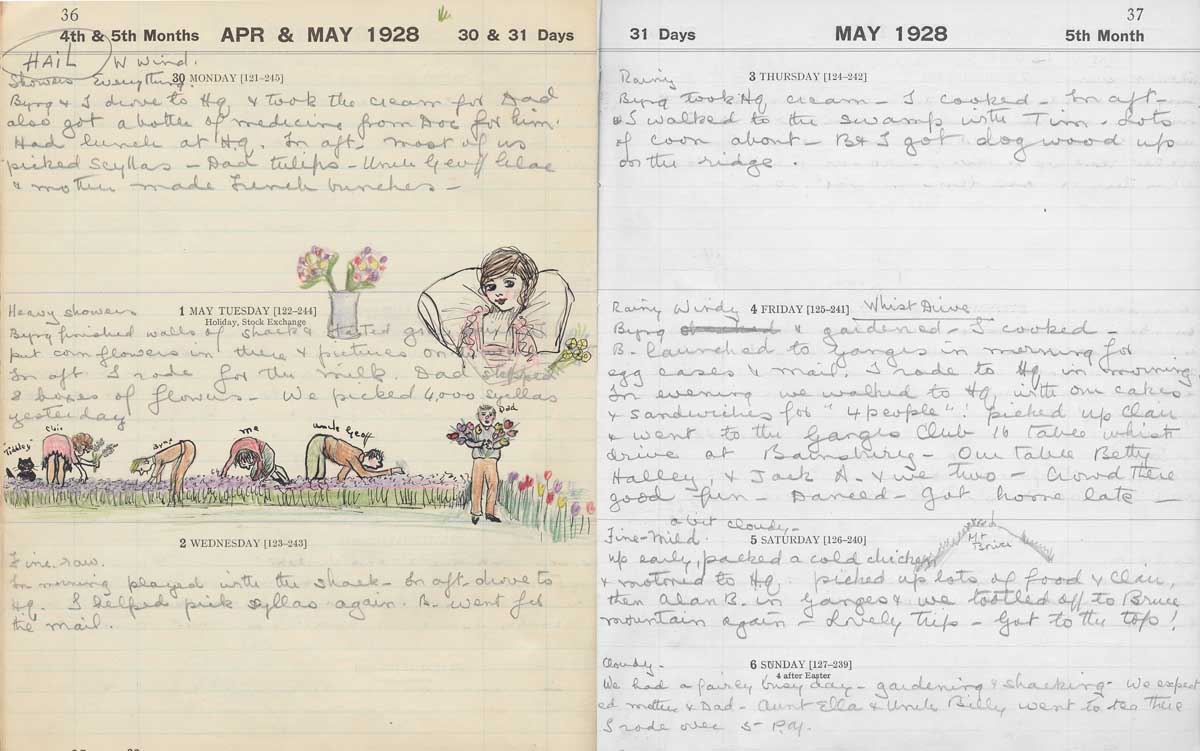 36
4th & 5th Months APR & MAY 1928 30 & 31 Days
HAIL W Wind.
30 MONDAY [121–245]
Showers Everything.
Byng & I drove to Hq & took the cream for Dad
also got a bottle of medicine from Doc for him.
Had lunch at Hq. In aft. most of us
picked scyllas – Dad tulips – Uncle Geoff lilac
& mother made French bunches –
Heavy showers
1 MAY TUESDAY [122–244]
Holiday, Stock Exchange
Byng finished walls of shack &
put cornflowers in there & pictures on
In aft. I rode for the milk. Dad shipped
8 boxes of flowers – We picked 4,000 scyllas
yesterday
Clair
Byng
me
Uncle Geoff
Dad
2 WEDNESDAY [123–243]
Fine. raw.
In morning played with the shack – In aft. drove to
Hq. I helped pick syllas again. B. went for
the mail.
37
31 Days MAY 1928 5th Month
3 THURSDAY [124–242]
Rainy
Byng took Hq cream – I cooked – In aft –
& I walked to the swamp with Tim. Lots
of coon about – B & I got dogwood up
on the ridge.
Rainy Windy 4 FRIDAY [125–241] Whist Drive
Byng & gardened – I cooked –
B. launched to Ganges in morning for
egg cases & mail. I rode to Hq in morning.
In evening we walked to Hq with our cakes
& sandwiches for "4 people"! picked up Clair
& went to the Ganges Club 16 table whist
drive at Bainsbury – Our table Betty
Halley, & Jack A. & we two – Crowd there
good fun – Danced – Got home late –
a bit cloudy –
Fine – Mild. 5 SATURDAY [126–240]
Mt Bruce
up early, packed a cold chicken
& motored to Hq. picked up lots of food & Clair,
then Alan B. in Ganges & we tootled off to Bruce
mountain again – Lovely trip – Got to the top!
Cloudy – 6 SUNDAY [127–239]
4 after Easter
We had a fairly busy day – gardening & shacking – We expect
ed mother & Dad – Aunt Ella & Uncle Billy went to tea there
I rode over 5 –